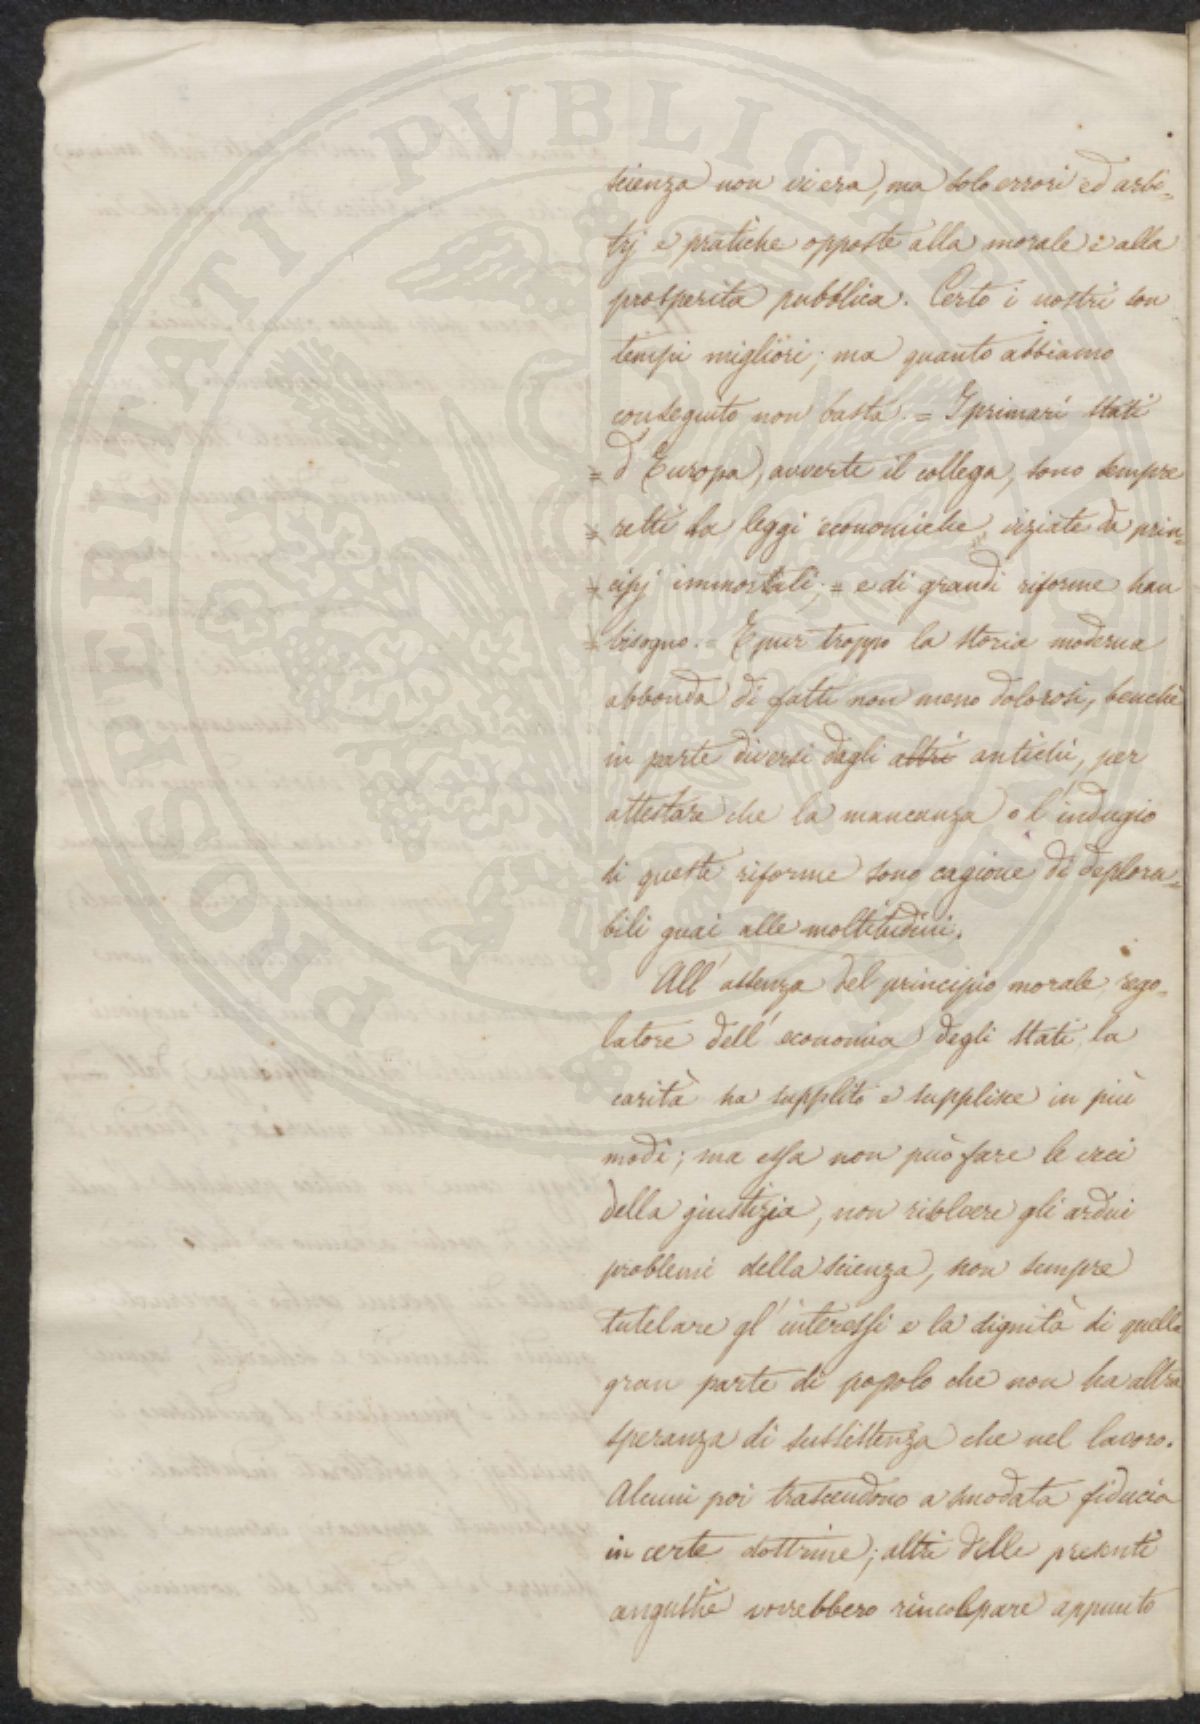 scienza non vi era, ma solo errori ed arbi-
trj e pratiche opposte alla morale e alla
prosperità pubblica. Certo i nostri son
tempi migliori; ma quanto abbiamo
conseguito non basta. = I primari stati
= d'Europa, avverte il collega, sono sempre
= retti da leggi economiche viziate da prin-
= cipj immortali; = e di grandi riforme han
= bisogno. = E pur troppo la storia moderna
abbonda di fatti non meno dolorosi, benchè
in parte diversi dagli altri antichi, per
attestare che la mancanza o l'indugio
di queste riforme sono cagione di deplora-
bili guai alle moltitudini.
All'assenza del principio morale rego-
latore dell'economia degli stati, la
carità ha supplito e supplisce in più
modi; ma essa non può fare le veci
della giustizia, non risolvere gli ardui
problemi della scienza, non sempre
tutelare gl'interessi e la dignità di quella
gran parte di popolo che non ha altra
speranza di sussistenza che nel lavoro.
Alcuni poi trascendono a smodata fiducia
in certe dottrine; altri delle presenti
angustie vorrebbero rincolpare appunto
PROSPERITATI PVBLICAE